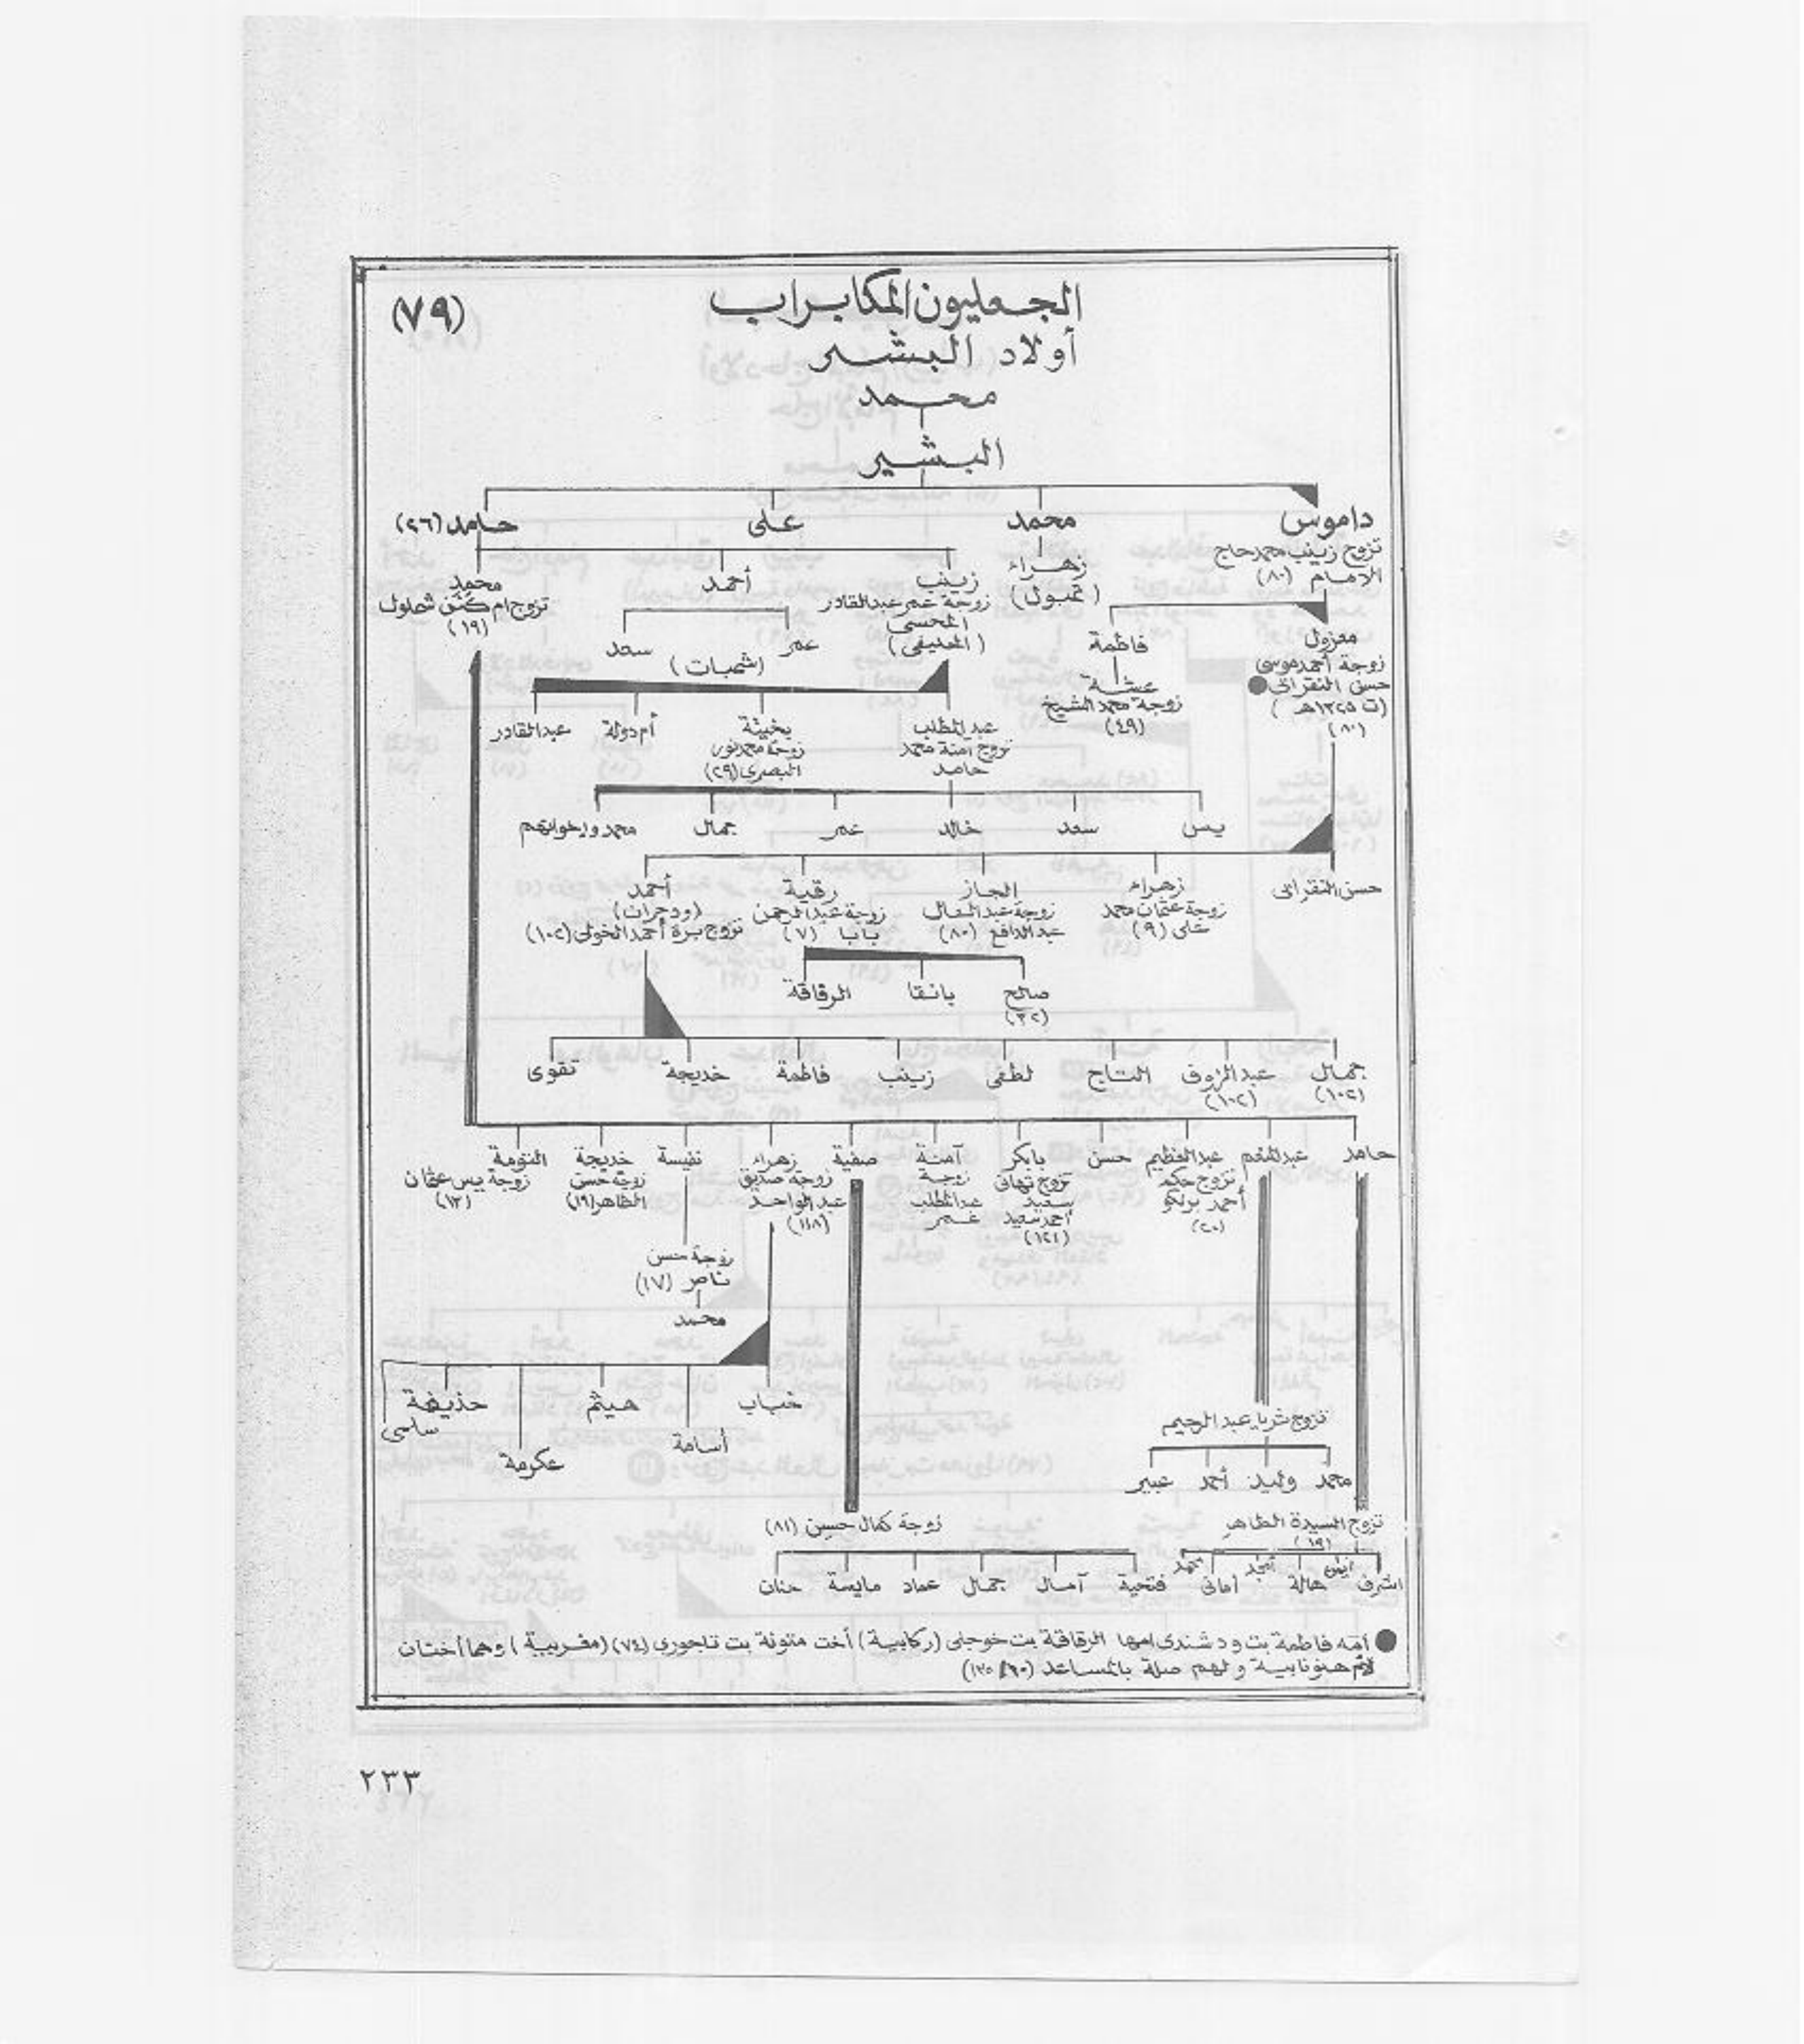 (٧٩)
الجعليون المكابراب
أولاد البشير
محمد
البشير
داموس
محمد
على
حامد (٢٦)
تزوج زينب محمد حاج
الامام (٨٠)
زهراء
(تمبول)
زينب
زوجة عمر عبدالقادر
المحسى
(الحليفى)
أحمد
محمد
تزوج ام كتن شملول
(١٩)
معزول
زوجة أحمد موسى
حسن النقرابى
(ت ١٣٢٥هـ)
(٨٠)
فاطمة
عشة
زوجة محمد الشيخ
(٤٩)
عمر
سعد
(شمبات)
عبد المطلب
تزوج امنة محمد
حامد
بخيتة
زوجة محمد نور
البصرى (٢٩)
أم دولة
عبدالقادر
يس
سعد
خالد
عمر
جمال
محمد وإخوانهم
حسن النقرابى
زهراء
زوجة عثمان محمد
على (٩)
الجاز
زوجة عبد العال
عبد الدافع (٨٠)
رقية
زوجة عبد الرحمن
بابا (٧)
أحمد
(ود جران)
تزوج برة أحمد الخولى (١٠٢)
صالح
(٣٢)
بانقا
الرقاقة
جمال
(١٠٢)
عبد الرؤوف
(١٠٢)
التاج
لطفى
زينب
فاطمة
خديجة
تقوى
حامد
عبد المنعم
عبد العظيم
تزوج حكم
أحمد بريكو
(٢٠)
حسن
بابكر
تزوج تهانى
سعيد
أحمد سعيد
(١٢١)
آمنة
زوجة
عبد المطلب
عمر
صفية
زهراء
زوجة صديق
عبد الواحد
(١١٨)
نفيسة
خديجة
زوجة حسن
الطاهر (١٩)
التومة
زوجة يس عثمان
(١٣)
زوجة حسن
ناصر (١٧)
محمد
خباب
أسامة
هيثم
عكرمة
حذيفة
سلمى
تزوج ثريا عبد الرحيم
محمد
وليد
أحمد
عبير
تزوج السيدة الطاهر
(١٩)
زوجة كمال حسين (٨١)
اشرف
ايمن
هالة
امجد
أمانى
محمد
فتحية
آمال
جمال
عماد
مايسة
حنان
● أمه فاطمة بت ود شندى امها الرقاقة بت خوجلى (ركابية) أخت متونة بت تاجورى (٧٤) (مغربية) وهما أختان
لأم هنونابية ولهم صلة بالمساعد (١٢٥/٦٠)
٢٣٣